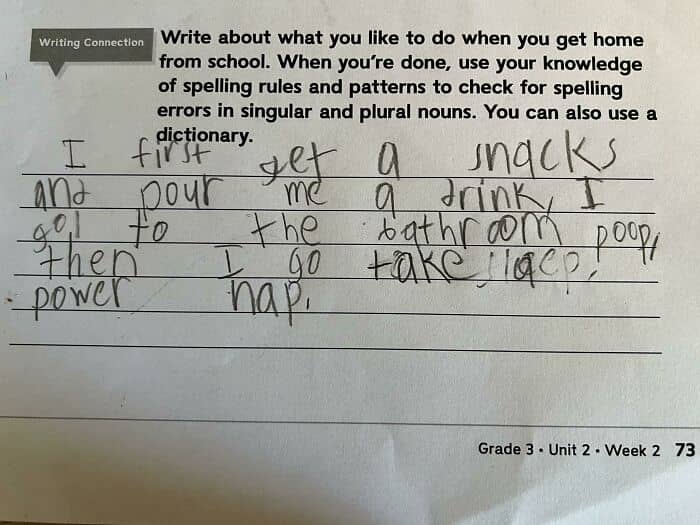 Writing Connection
Write about what you like to do when you get home
from school. When you're done, use your knowledge
of spelling rules and patterns to check for spelling
errors in singular and plural nouns. You can also use a
dictionary.
I first get a snacks
and pour me a drink, I
go, to the bathroom poop,
then I go take
power nap.
Grade 3 • Unit 2 • Week 2 73